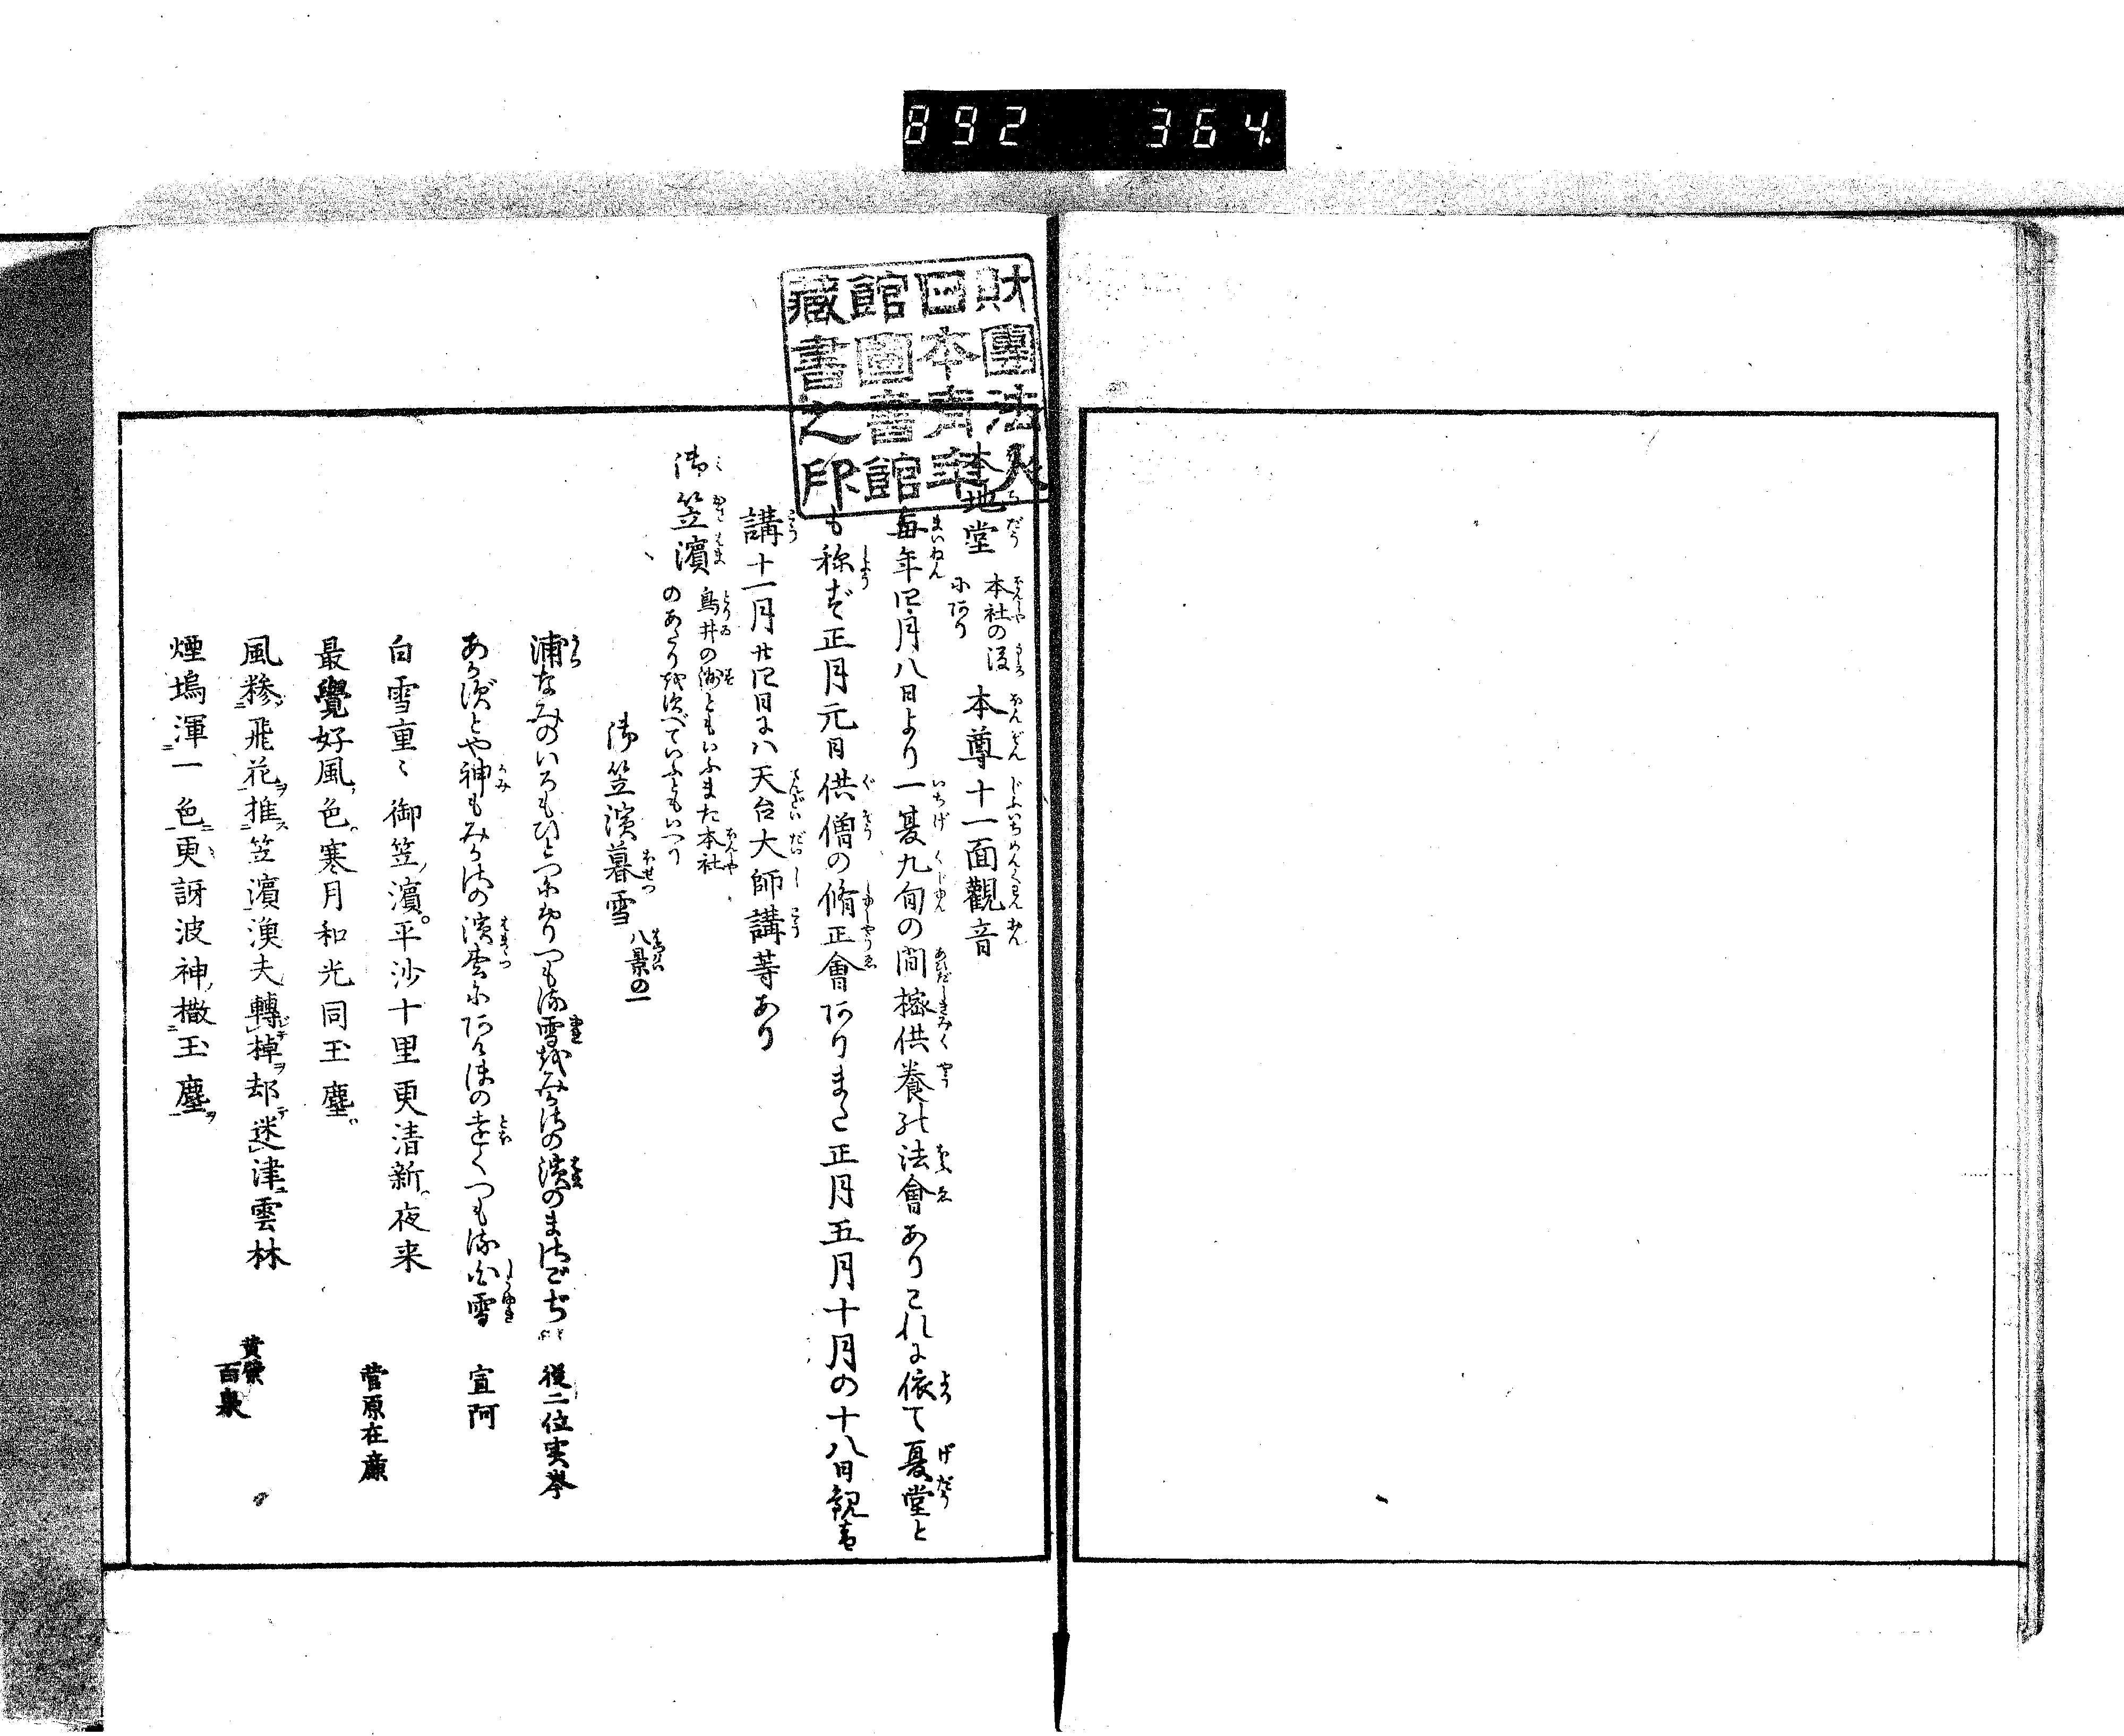 892 364
財團法人
日本青年
館圖書館
藏書之印
本地堂 本社の後
にあり 本尊十一面觀音
毎年四月八日より一夏九旬の間樒供養の法會ありこれに依て夏堂と
も称ず正月元日供僧の脩正會ありまた正月五月十月の十八日観音
講十一月廿四日には天台大師講等あり
御笠濱 鳥井の洲ともいふまた本社
のあたりを次べていふともいへり
御笠濱暮雪 八景の一
浦なみのいろもひとつにふりつもる雪をみかさの濱のまさごぢ 従二位実岑
あかずとや神もみかさの濱松にあらはの遠くつもる白雪 宣阿
白雪重〻御笠ノ濱。平沙十里更清新ナリ夜来
最覺好風ノ色。寒月和光同玉塵
風糝飛花ヲ推ス笠濱漁夫轉ジテ棹ヲ却テ迷津雲林
煙塢渾一色更訝波神ノ撒玉塵ヲ
菅原在廉
黄檗
百泉